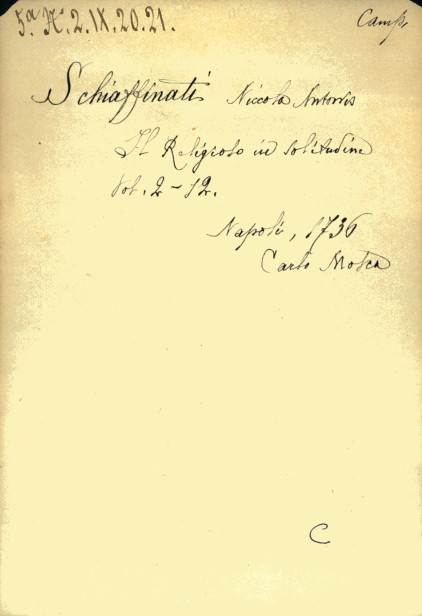 5.ª N.º 2. IX. 20. 21.
Camp.
Schiaffinati Niccola Antonio
Il Religioso in solitudine
Vol. 2-12.
Napoli, 1736
Carlo Mosca
C